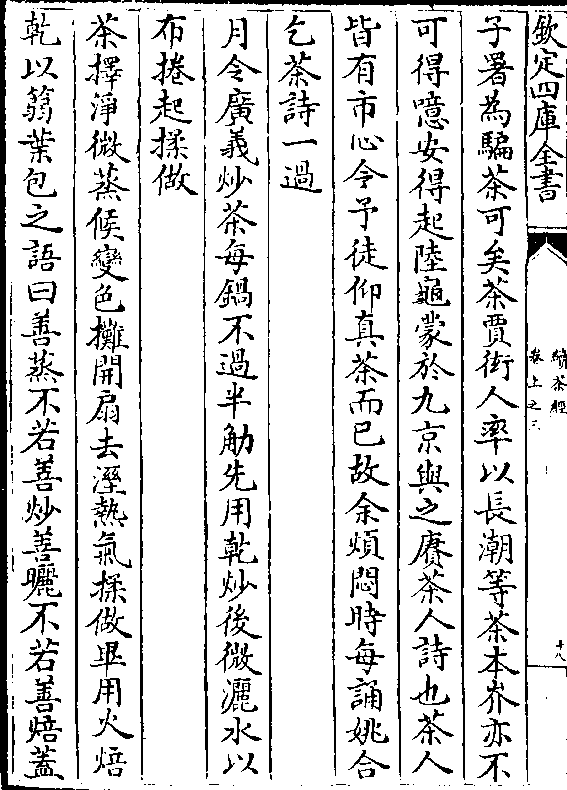 欽定四庫全書
續茶經
卷上之三
十八
子署為騙茶可矣茶賈衒人率以長潮等茶本岕亦不
可得噫安得起陸龜蒙於九京與之賡茶人詩也茶人
皆有市心令予徒仰真茶而已故余煩悶時每誦姚合
乞茶詩一過
月令廣義炒茶每鍋不過半觔先用乾炒後微灑水以
布捲起揉做
茶擇淨微蒸候變色攤開扇去溼熱氣揉做畢用火焙
乾以箬葉包之語曰善蒸不若善炒善曬不若善焙蓋